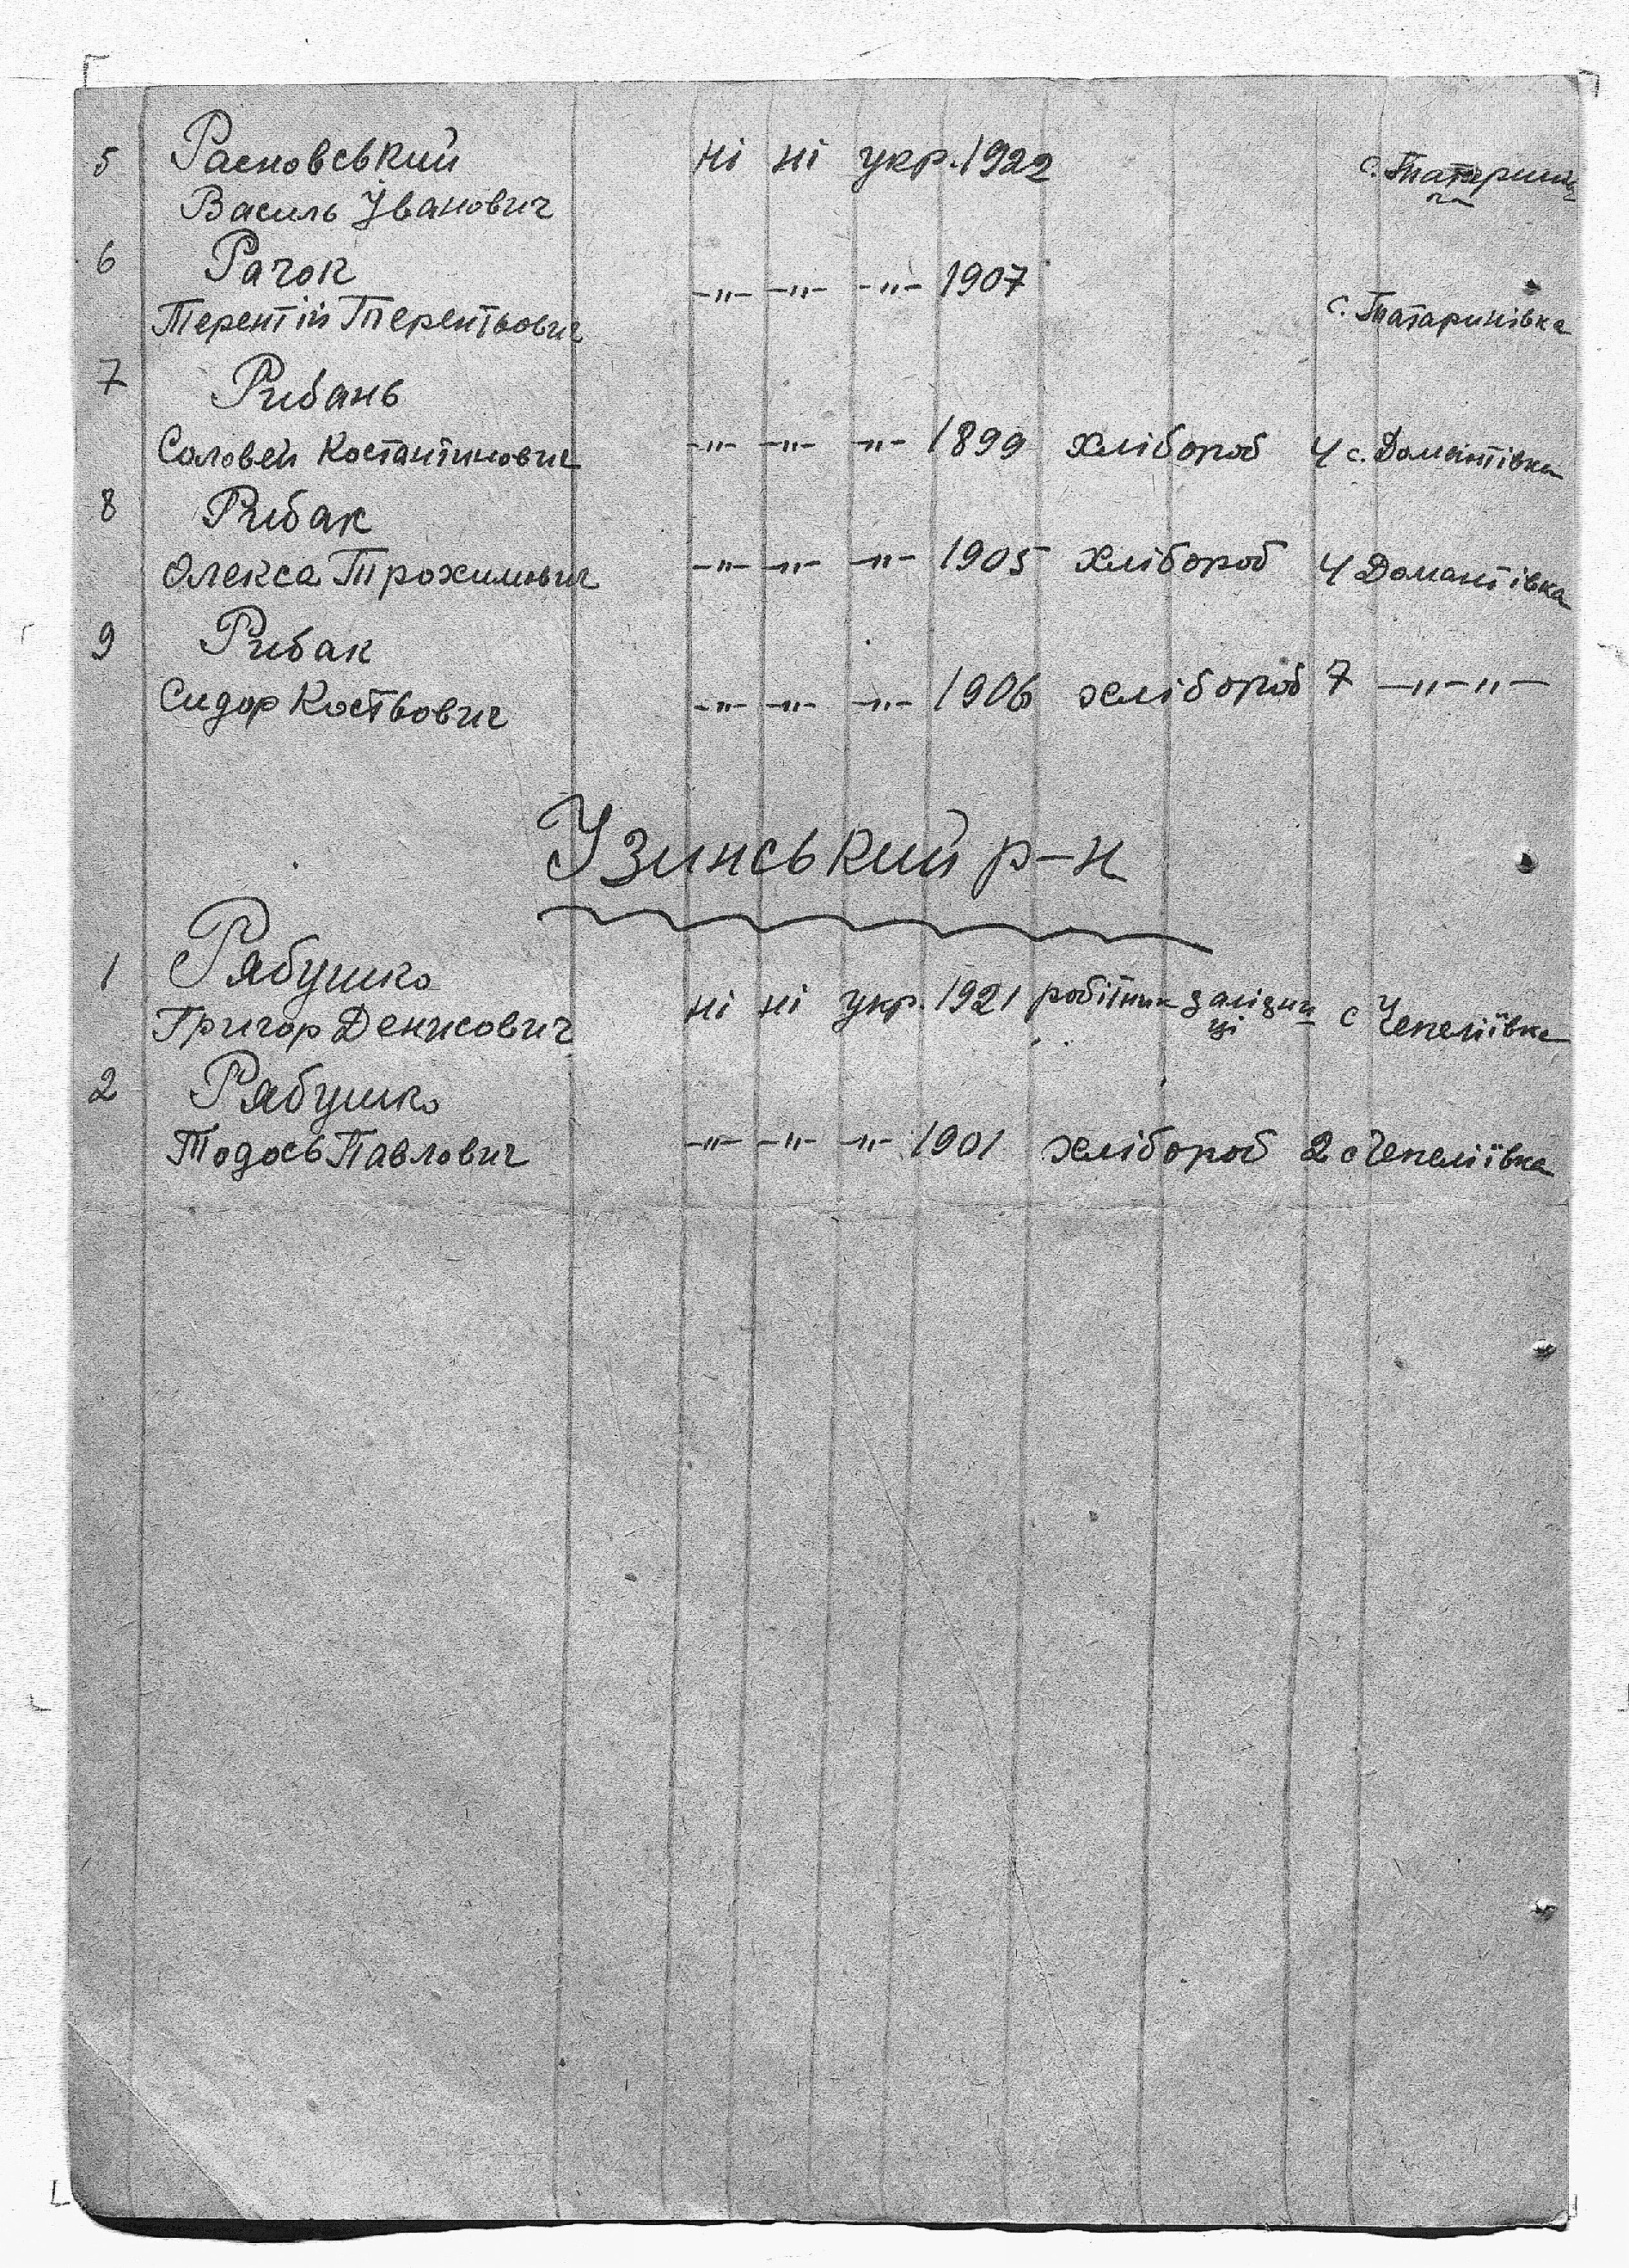 5 Расновський ні ні укр. 1922 с. Татаринів
Василь Іванович ка
6 Рачок -"- -"- -"- 1907
Терентій Терентьович с. Татаринівка
7 Рибань
Соловей Костантинович -"- -"- -"- 1899 хлібороб 4 с. Домантівка
8 Рибак
Олекса Трохимович -"- -"- -"- 1905 хлібороб 4 Домантівка
9 Рибак
Сидор Костьович -"- -"- -"- 1906 хлібороб 7 -"-"-
Узинський р-н
1 Рябушко ні ні укр. 1921 робітник залізни с Чепеліївка
Григор Денисович ці
2 Рябушко
Тодось Павлович -"- -"- -"- 1901 хлібороб 2 с Чепеліївка